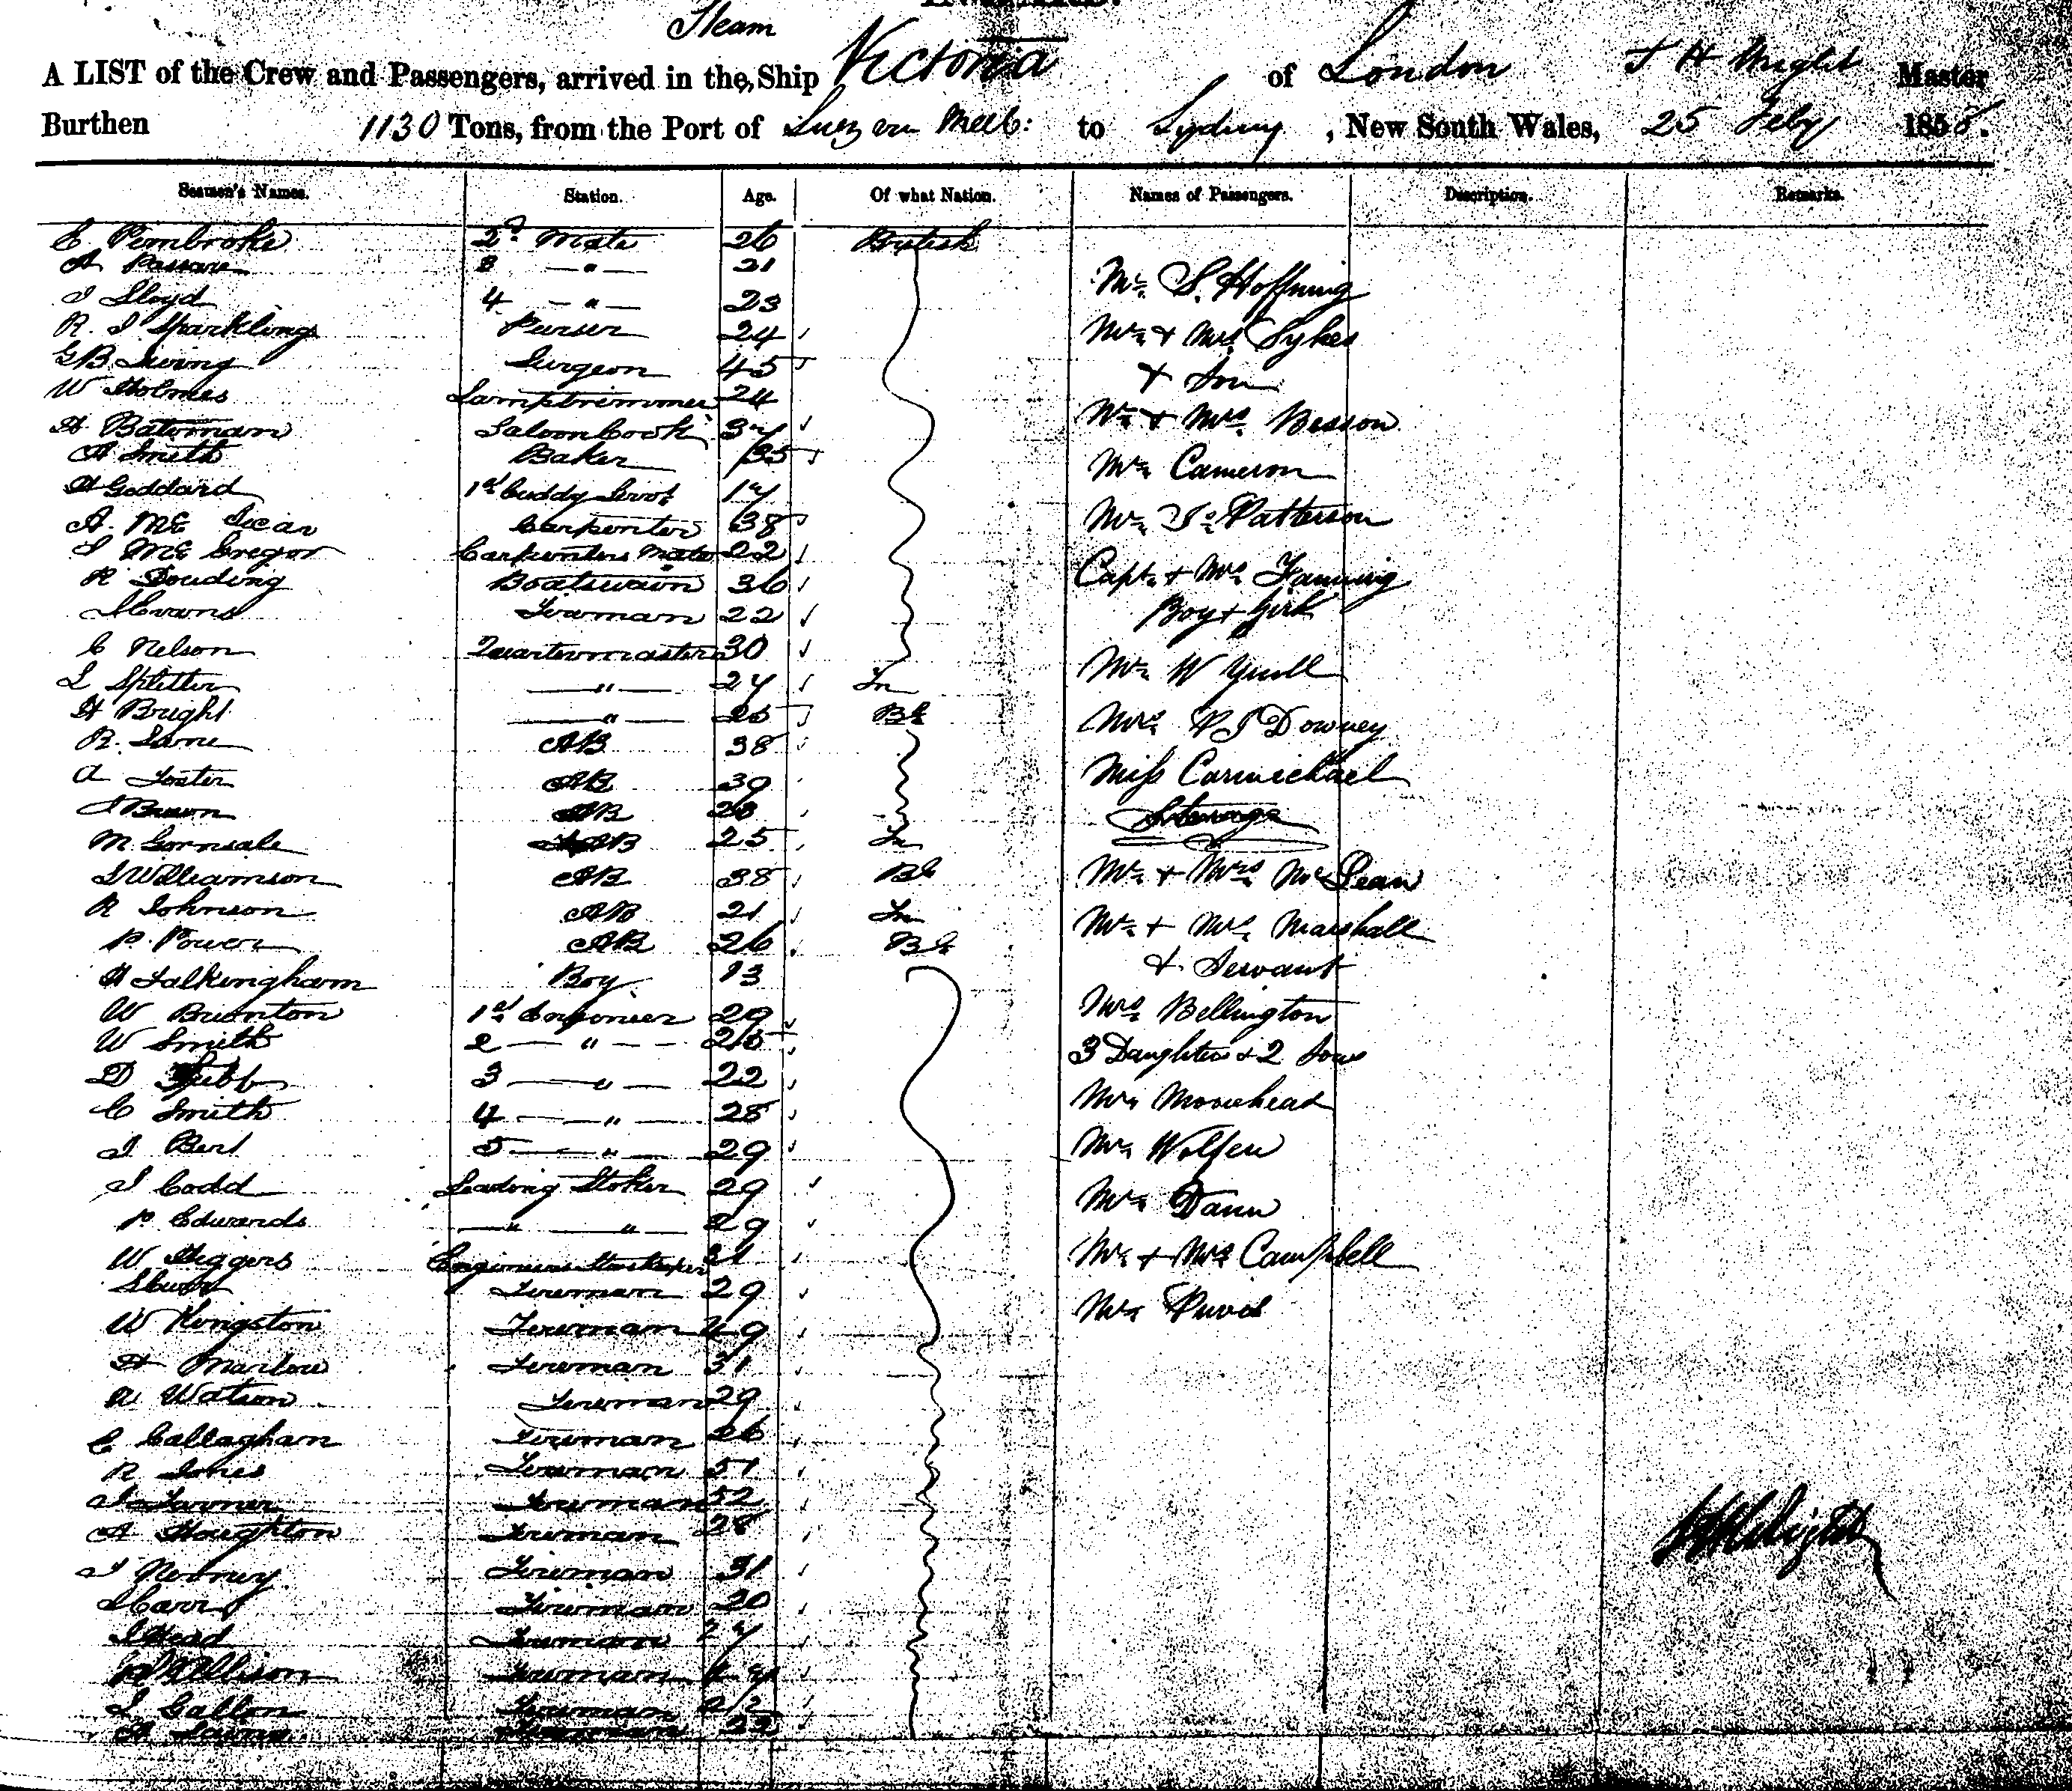 Steam
A LIST of the Crew and Passengers, arrived in the Ship Victoria of London J H Wright Master
Burthen 1130 Tons, from the Port of Suez via Melb: to Sydney, New South Wales, 25 Feby 1858.
Seamen's Names. Station. Age. Of what Nation. Names of Passengers. Description. Remarks.
E Pembroke 2d Mate 26 British
A 3 —"— 21
J Lloyd 4 —"— 23 Mr S. Hoffnung
R. J Sparkling Purser 24 Mr & Mrs Sykes
G B Irving Surgeon 45 & Son
W Holmes Lamptrimmer 24
H Bateman Saloon Cook 37 Mr & Mrs Besson
H Smith Baker 35 Mr Cameron
H Goddard 1st Cuddy Servt 17
A. Mc Carpenter 38 Mr Js Patterson
J Mc Gregor Carpenters Mate 22
R Douding Boatswain 36 Capt & Mrs Fanning
J Evans 22 Boy & Girl
C Nelson Quartermasters 30
L Splitter —"— 27 Fn Mr W Yuill
H Bright —"— 25 Bh Mrs P J Downey
R. Lane AB 38
A Foster AB 39 Miss Carmichael
J Brown AB 28 Steerage
M AB 25 Fn
J Williamson AB 38 Bh Mr & Mrs McLean
R Johnson AB 21 Fn Mr & Mrs Marshall
P. Power AB 26 Bh
H Falkingham Boy 13 & Servant
W Brunton 1st Engineer 29 Mrs Bellington
W Smith 2 —"— 25 3 Daughters & 2 Sons
D Gibb 3 —"— 22
C Smith 4 —"— 28 Mr Moorehead
J Bert 5 —"— 29 Mr Wolfen
J Codd Leading Stoker 29 Mr Dann
P. Edwards —"— —"— 29
W Heggers Engineers Storekeeper 31 Mr & Mrs Campbell
Fireman 29 Mr
W Kingston Fireman 29
H Marlow Fireman 31
A Watson Fireman 29
C Callaghan Fireman 26
R Jones Fireman 51
J Fireman 32
H Houghton Fireman 28
J Fireman 31 J H Wright
J Carr Fireman 20
J Head Fireman 27
Ellison Fireman
J Gallon Fireman
Fireman 22